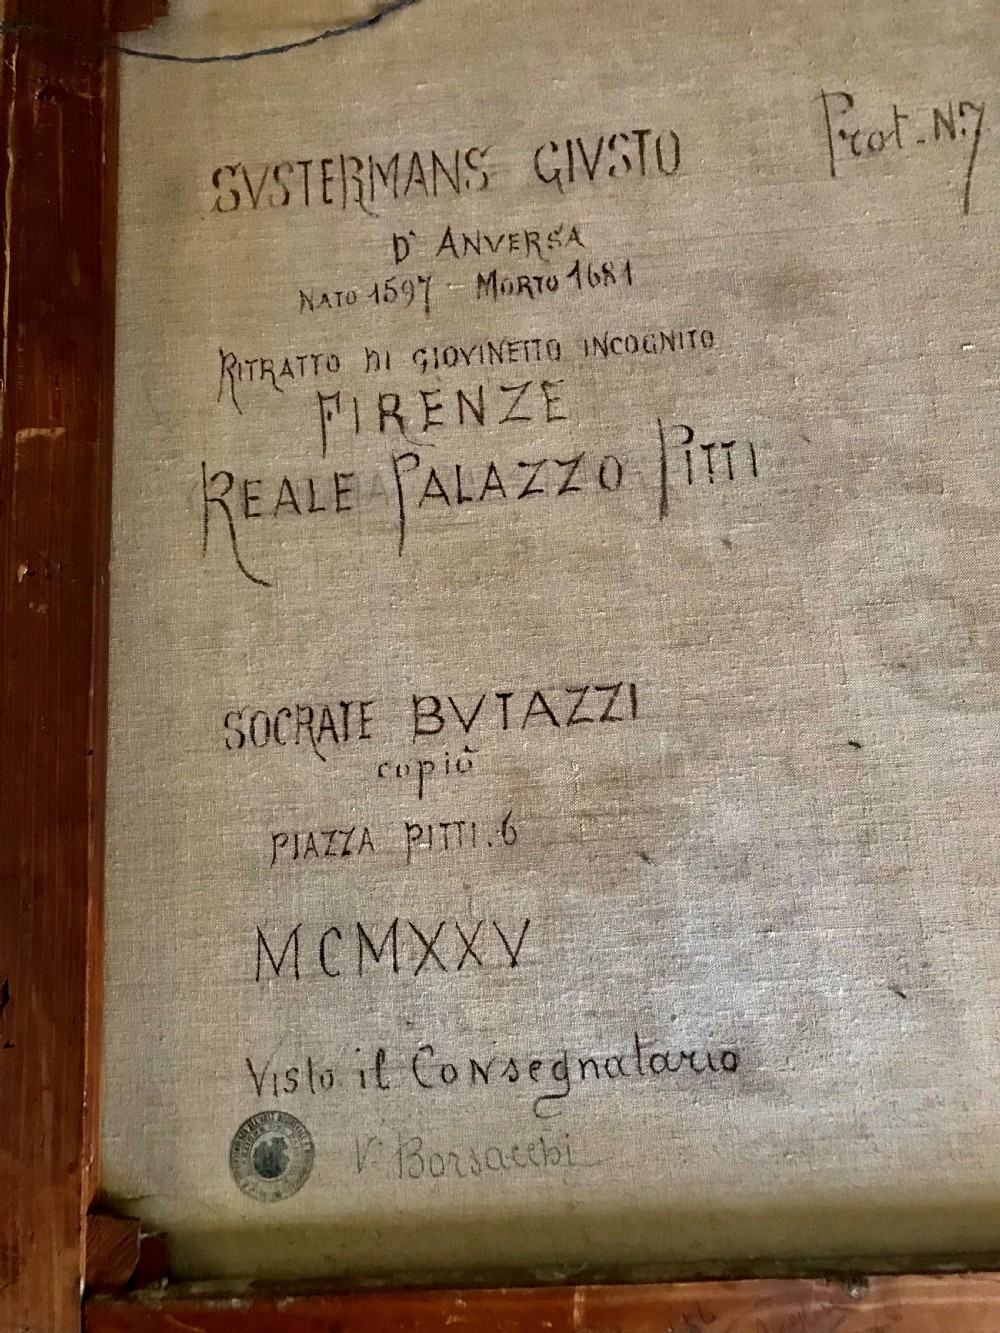 Prot. N. 7
SVSTERMANS GIVSTO
D' ANVERSA
NATO 1597 - MORTO 1681
RITRATTO DI GIOVINETTO INCOGNITO
FIRENZE
REALE PALAZZO PITTI
SOCRATE BVTAZZI
copiò
PIAZZA PITTI. 6
MCMXXV
Visto il Consegnatario
V. Borsacchi